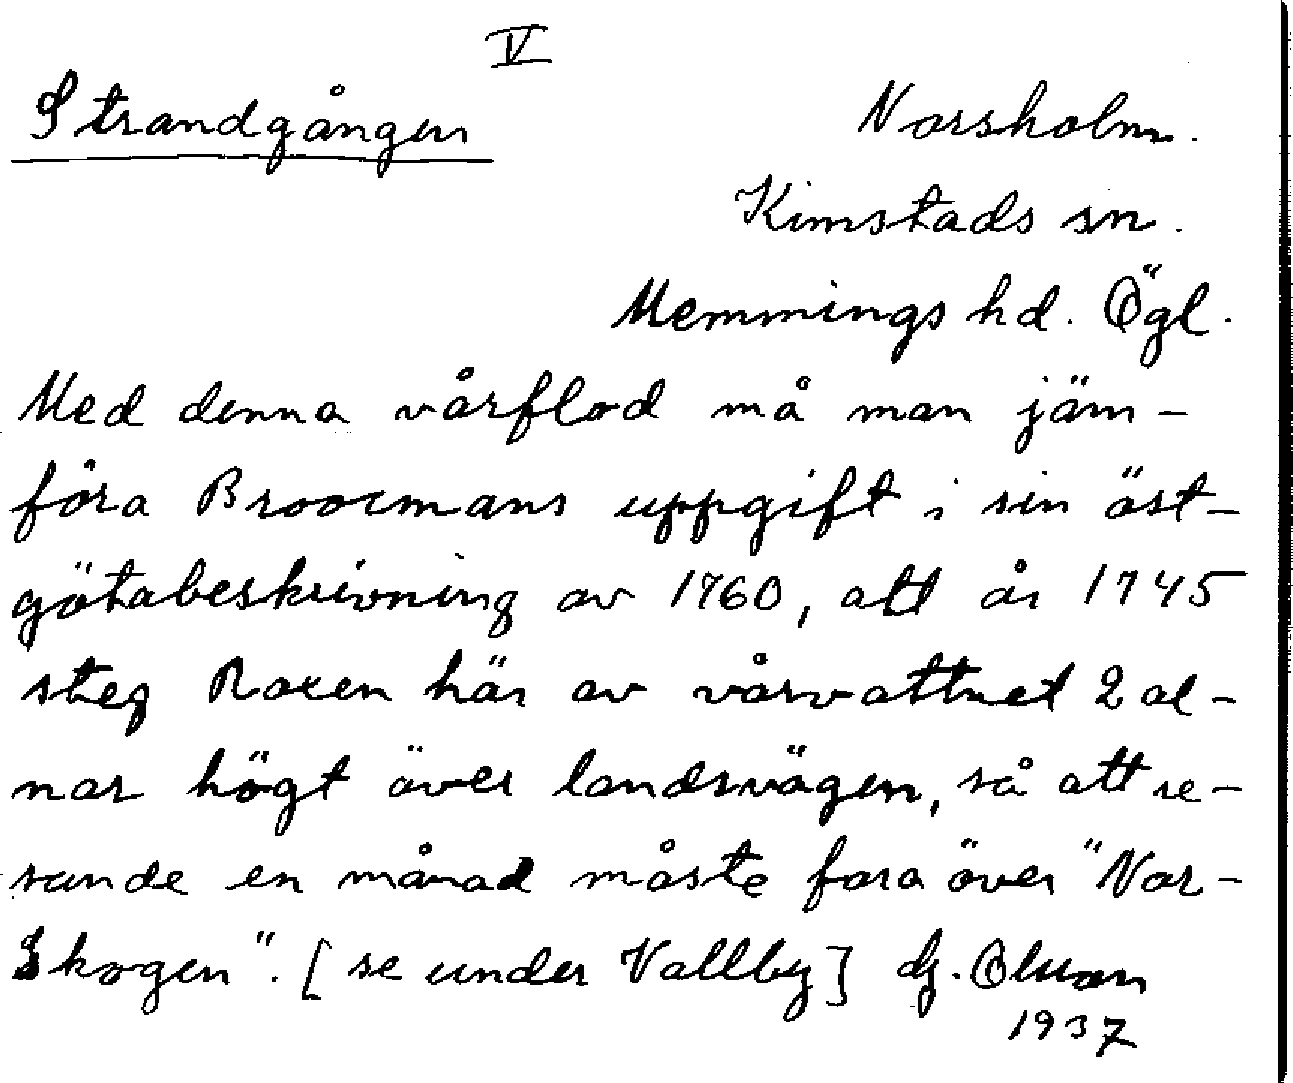 V
Strandgången
Norsholm.
Kimstads sn.
Memmings hd. Ögl.
Med denna vårflod må man jäm-
föra Broocmans uppgift i sin öst-
götabeskrivning av 1760, att år 1745
steg Roxen här av vårvattnet 2 al-
nar högt över landsvägen, så att re-
sande en månad måste fara över "Nor-
Skogen". [se under Vallby]
1937